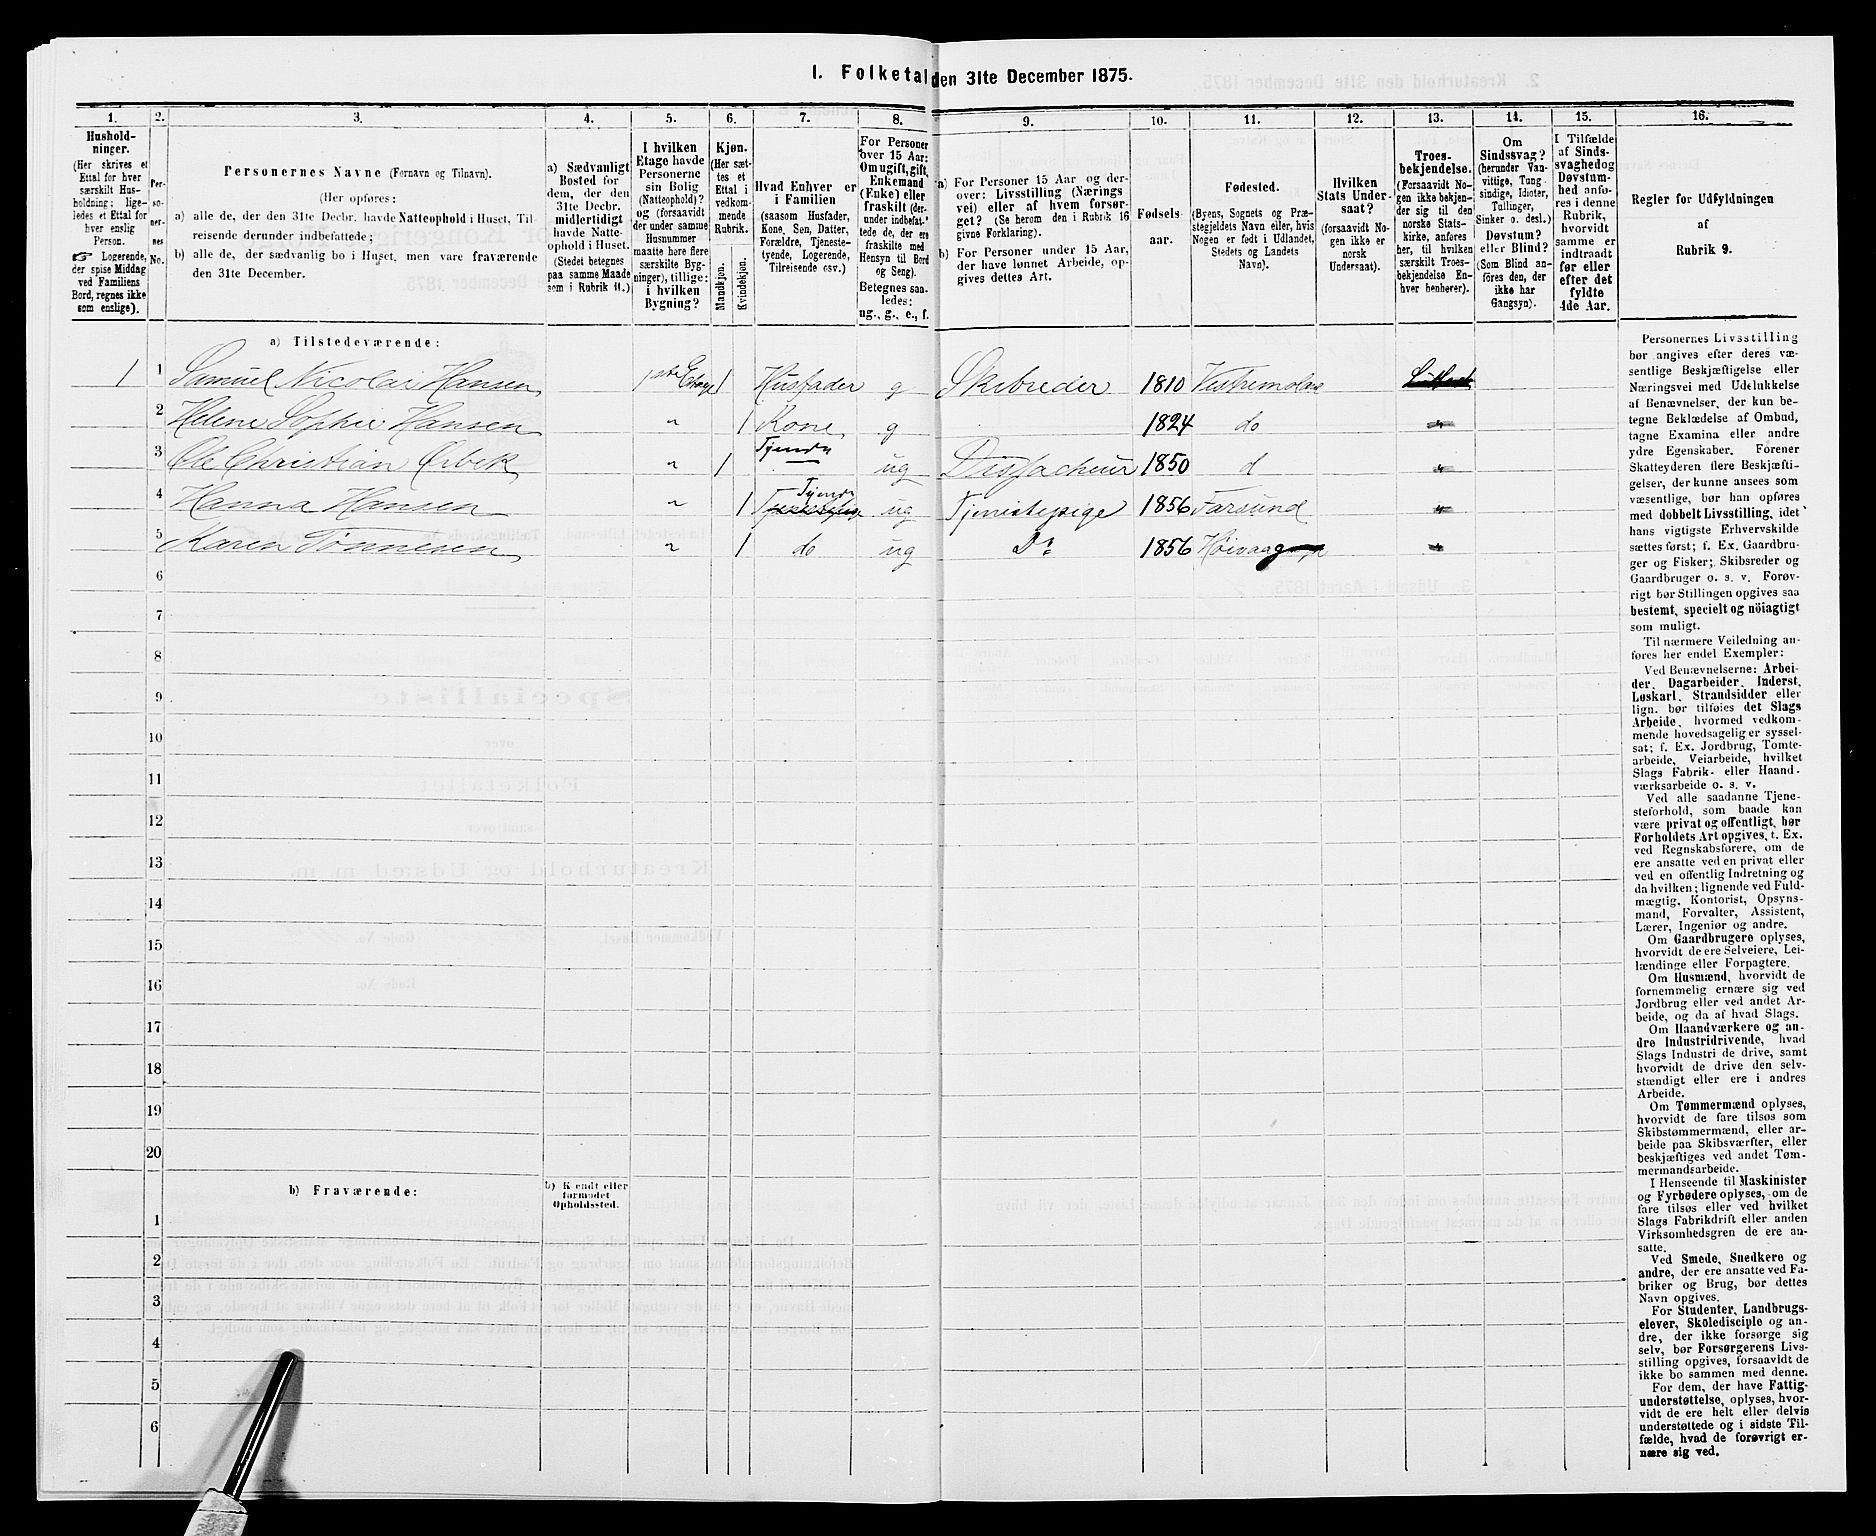 1. Folketal den 31te December 1875.
1. 2. 3. 4. 5. 6. 7. 8. 9. 10. 11. 12. 13. 14. 15. 16.
Hushold-
ninger.
(Her skrives et
Ettal for hver
særskilt Hus-
holdning; lige-
ledes et Ettal for
hver enslig
Person.
☞ Logerende,
der spise Middag
ved Familiens
Bord, regnes ikke
som enslige).
Per-
so-
ner-
nes
No.
Personernes Navne (Fornavn og Tilnavn).
(Her opføres:
a) alle de, der den 31te Decbr. havde Natteophold i Huset, Til-
reisende derunder indbefattede;
b) alle de, der sædvanlig bo i Huset, men vare fraværende
den 31te December.
a) Sædvanligt
Bosted for
dem, der den
31te Decbr.
midlertidigt
havde Natte-
ophold i Huset.
(Stedet betegnes
paa samme Maade
som i Rubrik 11.)
I hvilken
Etage havde
Personerne
sin Bolig
(Natteophold)?
og (forsaavidt
der under samme
Husnummer
maatte høre flere
særskilte Byg-
ninger), tillige:
i hvilken
Bygning?
Kjøn.
(Her sæt-
tes et
Ettal i
vedkom-
mende
Rubrik.
Mandkjøn.
Kvindekjøn.
Hvad Enhver er
i Familien
(saasom Husfader,
Kone, Søn, Datter,
Forældre, Tjeneste-
tyende, Logerende,
Tilreisende osv.)
For Personer
over 15 Aar:
Om ugift, gift,
Enkemand
(Enke) eller
fraskilt (der-
under indbefat-
tede de, der ere
fraskilte med
Hensyn til Bord
og Seng).
Betegnes saa-
ledes:
ug., g., e., f.
a) For Personer 15 Aar og der-
over: Livsstilling (Nærings
vei) eller af hvem forsør-
get? (Se herom den i Rubrik 16
givne Forklaring).
b) For Personer under 15 Aar,
der have lønnet Arbeide, op-
gives dettes Art.
Fødsels-
aar.
Fødested.
(Byens, Sognets og Præ-
stegjeldets Navn eller, hvis
Nogen er født i Udlandet,
Stedets og Landets
Navn).
Hvilken
Stats Under-
saat?
(forsaavidt No-
gen ikke er
norsk
Undersaat).
Troes-
bekjendelse.
(Forsaavidt No-
gen ikke bekjen-
der sig til den
norske Stats-
kirke, anføres
her, til hvilken
særskilt Troes-
bekjendelse En-
hver henhører).
Om
Sindssvag?
(herunder Van-
vittige, Tung
sindige, Idioter,
Tullinger,
Sinker o. desl.)
Døvstum?
eller Blind?
(Som Blind an-
føres den, der
ikke har
Gangsyn).
I Tilfælde
af Sinds-
svaghed og
Døvstum-
hed anfø-
res i denne
Rubrik,
hvorvidt
samme er
indtraadt
før eller
efter det
fyldte
4de Aar.
Regler for Udfyldningen
af
Rubrik 9.
a) Tilstedeværende:
1 1 Samuel Nicolai Hansen 1ste Etage 1 Husfader g Skibreder 1810
2 Helene Sophie Hansen " 1 Kone g 1824 do "
3 Ole Christian Orbek " 1 Tjende ug Dispacheur 1850 d "
4 Hanna Hansen " 1 Tjende ug Tjenistepige 1856 Farsund "
5 Karen Tønnesen " 1 do ug Do 1856 Høivaag "
6
7
8
9
10
11
12
13
14
15
16
17
18
19
20
b) Fraværende:
b) Kjendt eller
formodet
Opholdssted.
1
2
3
4
5
6
Personernes Livsstilling
bør angives efter deres væ-
sentlige Beskjæftigelse eller
Næringsvei med Udelukkelse
af Benævnelser, der kun be-
tegne Beklædelse af Ombud,
tagne Examina eller andre
ydre Egenskaber. Forener
Skatteyderen flere Beskjæfti-
gelser, der kunne ansees som
væsentlige, bør han opføres
med dobbelt Livsstilling, idet
hans vigtigste Erhvervskilde
sættes først; f. Ex. Gaardbru-
ger og Fisker; Skibsreder og
Gaardbruger o. s. v. Forøv-
rigt bør Stillingen opgives saa
bestemt, specielt og nöiagtigt
som muligt.
Til nærmere Veiledning an-
føres her endel Exempler:
Ved Benævnelserne: Arbei-
der, Dagarbeider, Inderst,
Løskarl, Strandsidder eller
lign. bør tilføies det Slags
Arbeide, hvormed vedkom-
mende hovedsagelig er syssel-
sat; f. Ex. Jordbrug, Tomte-
arbeide, Veiarbeide, hvilket
Slags Fabrik- eller Haand-
værksarbeide o. s. v.
Ved alle saadanne Tjene-
steforhold, som baade kan
være privat og offentligt, bør
Forholdets Art opgives, t. Ex.
ved Regnskabsførere, om de
ere ansatte ved en privat eller
ved en offentlig Indretning og
da hvilken; lignende ved Fuld-
mægtig, Kontorist, Opsyns-
mand, Forvalter, Assistent,
Lærer, Ingeniør og andre.
Om Gaardbrugere oplyses,
hvorvidt de ere Selveiere, Lei-
lændinge eller Forpagtere.
Om Husmænd, hvorvidt de
fornemmelig ernære sig ved
Jordbrug eller ved andet Ar-
beide, og da af hvad Slags.
Om Haandværkere og an-
dre Industridrivende, hvad
Slags Industri de drive, samt
hvorvidt de drive den selv-
stændigt eller ere i andres
Arbeide.
Om Tømmermænd oplyses,
hvorvidt de fare tilsøs som
Skibstømmermænd, eller ar-
beide paa Skibsværfter, eller
beskjæftiges ved andet Tøm-
mermandsarbeide.
I Henseende til Maskinister
og Fyrbødere oplyses, om de
fare tilsøs eller ved hvilket
Slags Fabrikdrift eller anden
Virksomhedsgren de ere an-
satte.
Ved Smede, Snedkere og
andre, der ere ansatte ved Fa-
briker og Brug, bør dettes
Navn opgives.
For Studenter, Landbrugs-
elever, Skoledisciple og an-
dre, der ikke forsørge sig
selv, bør Forsørgerens Livs-
stilling opgives, forsaavidt de
ikke bo sammen med denne.
For dem, der have Fattig-
understøttelse, oplyses, hvor-
vidt de ere helt eller delvis
understøttede og i sidste Til-
fælde, hvad de forøvrigt er-
nære sig ved.